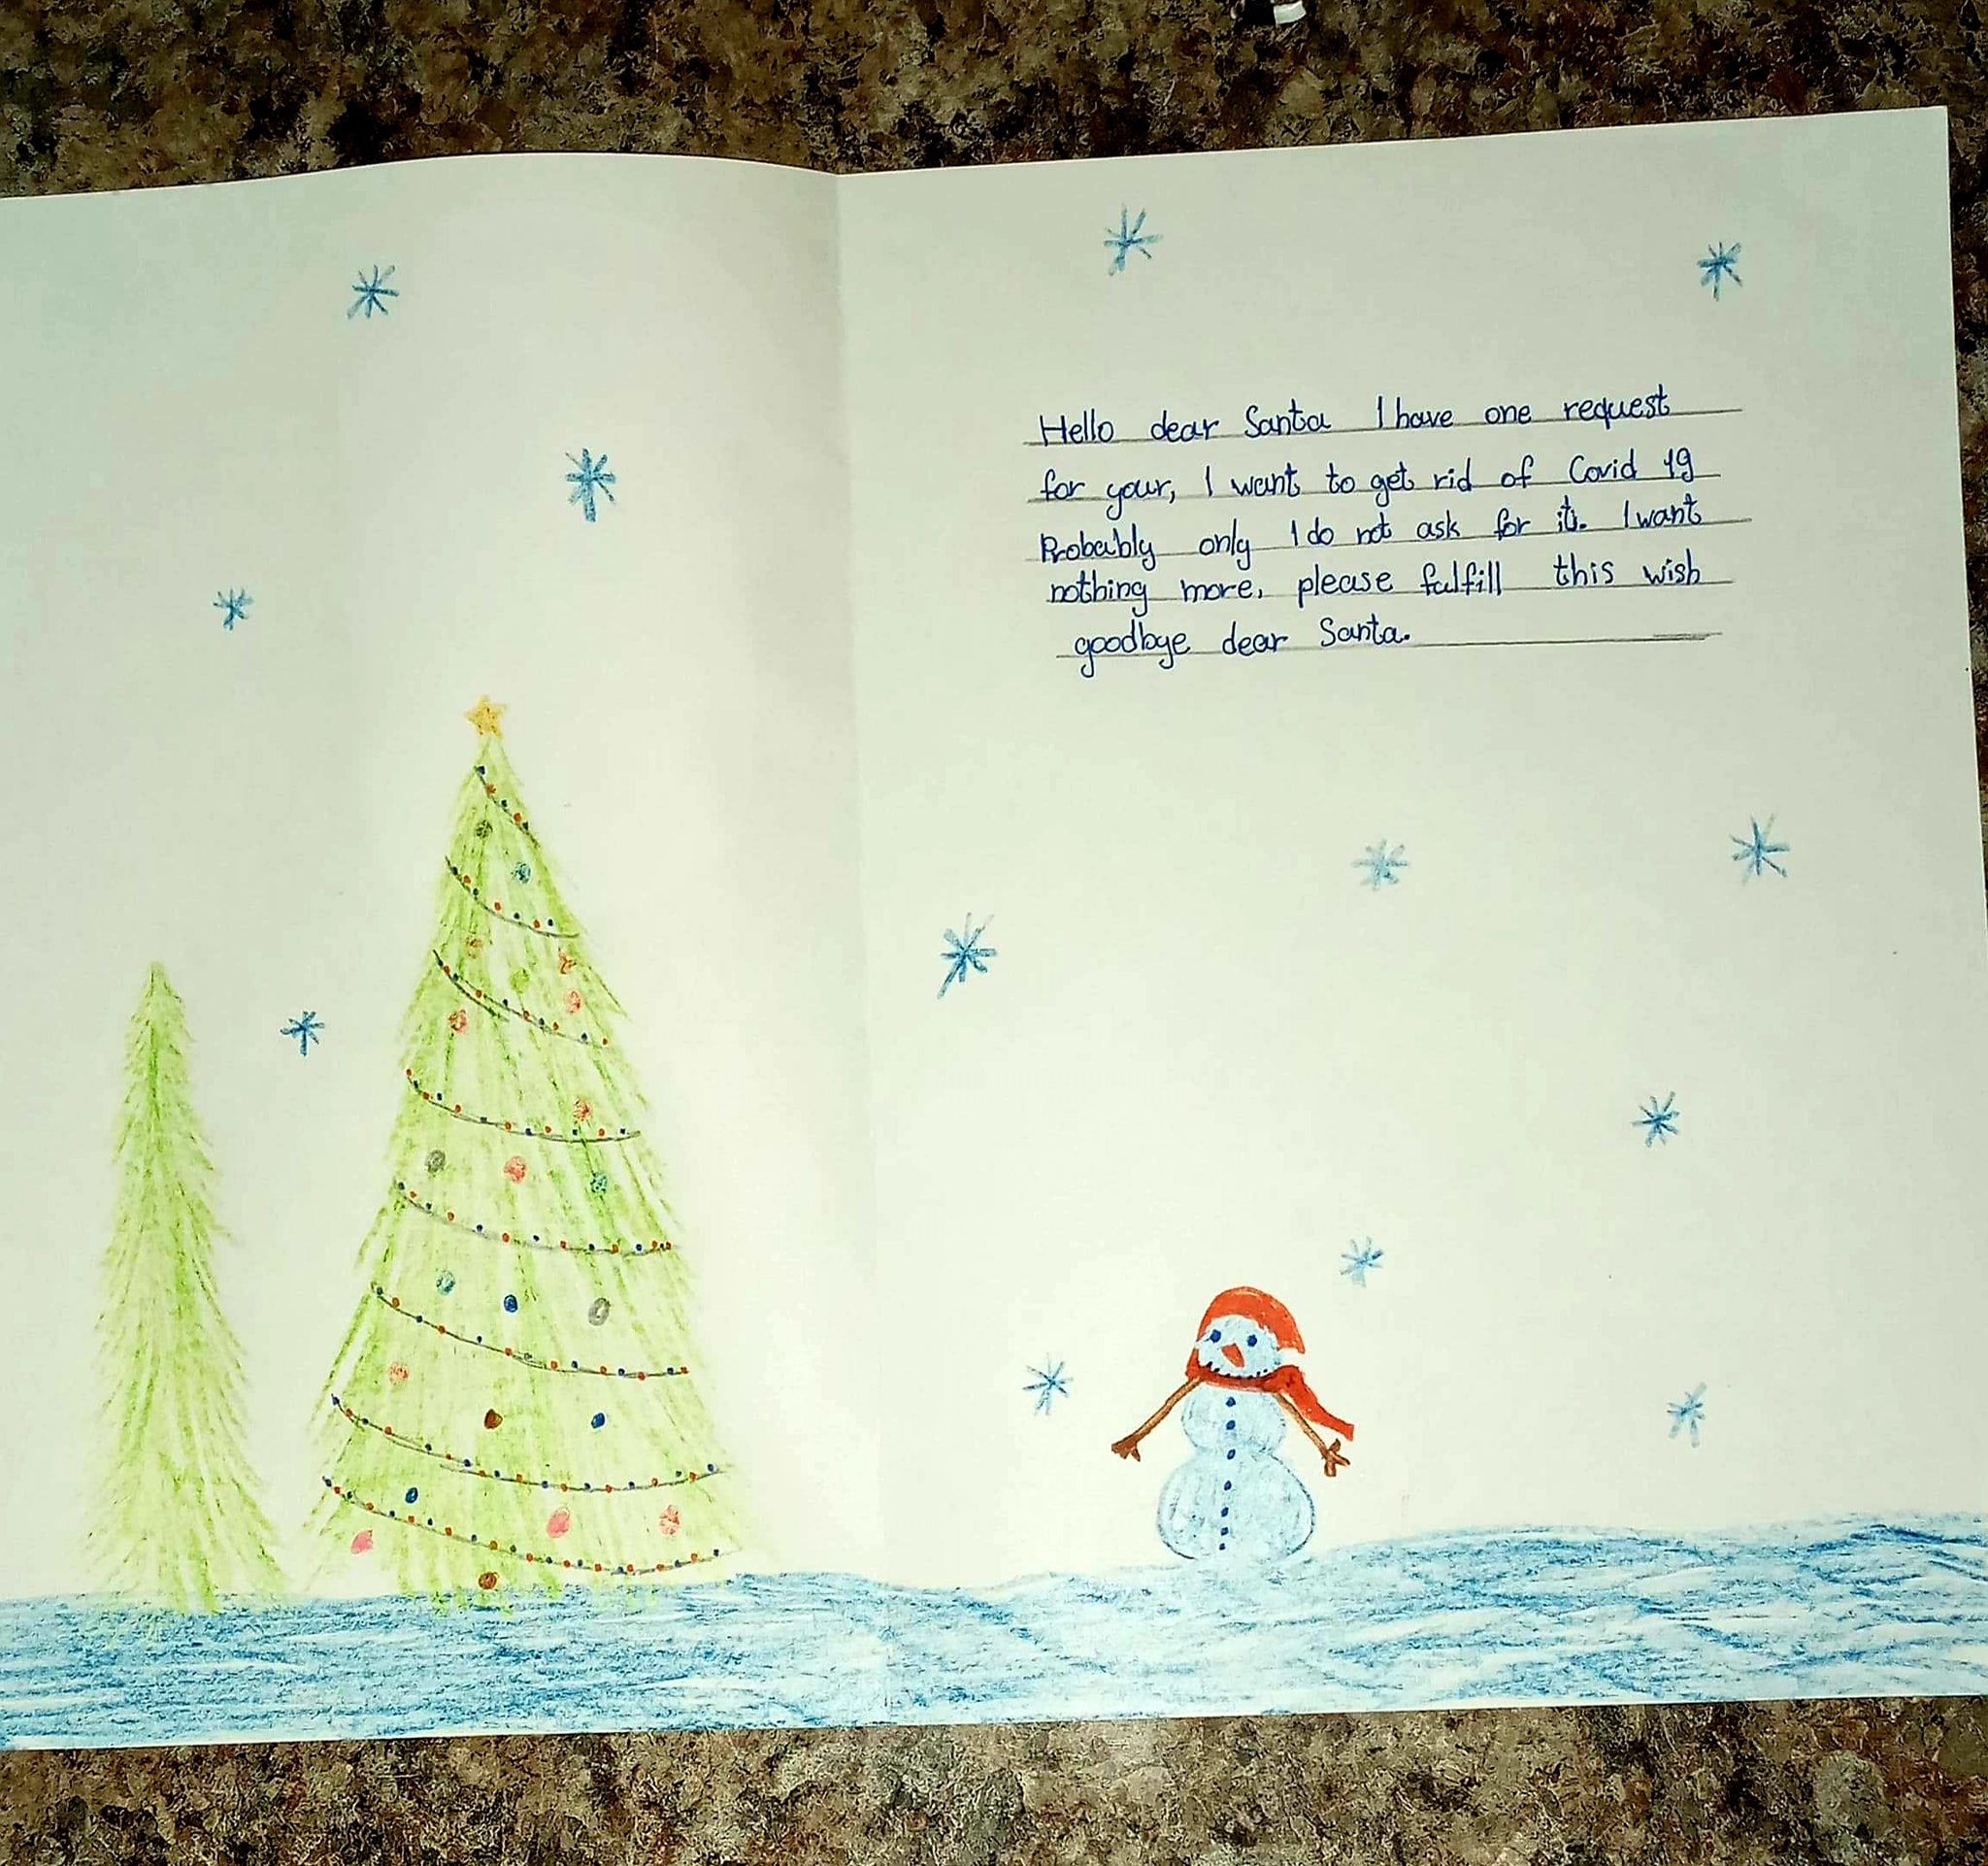 Hello dear Santa I have one request
for your, I want to get rid of Covid 19
Probably only I do not ask for it. I want
nothing more, please fulfill this wish
goodbye dear Santa.